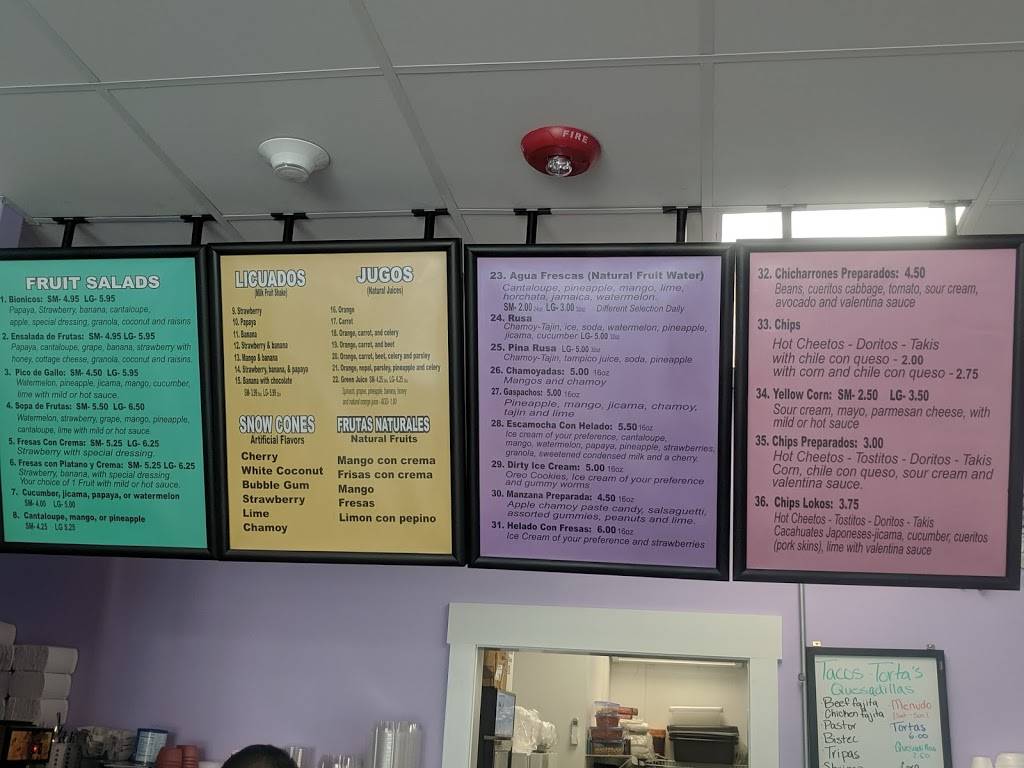 FIRE
FRUIT SALADS
1. Bionicos: SM- 4.95 LG- 5.95
Papaya, Strawberry, banana, cantaloupe,
apple, special dressing, granola, coconut and raisins
2. Ensalada de Frutas: SM- 4.95 LG- 5.95
Papaya, cantaloupe, grape, banana, strawberry with
honey, cottage cheese, granola, coconut and raisins.
3. Pico de Gallo: SM- 4.50 LG- 5.95
Watermelon, pineapple, jicama, mango, cucumber,
lime with mild or hot sauce.
4. Sopa de Frutas: SM- 5.50 LG- 6.50
Watermelon, strawberry, grape, mango, pineapple,
cantaloupe, lime with mild or hot sauce.
5. Fresas Con Crema: SM- 5.25 LG- 6.25
Strawberry with special dressing.
6. Fresas con Platano y Crema: SM- 5.25 LG- 6.25
Strawberry, banana, with special dressing
Your choice of 1 Fruit with mild or hot sauce.
7. Cucumber, jicama, papaya, or watermelon
SM- 4.00 LG- 5.00
8. Cantaloupe, mango, or pineapple
SM- 4.25 LG 5.25
LICUADOS
(Milk Fruit Shake)
9. Strawberry
10. Papaya
11. Banana
12. Strawberry & banana
13. Mango & banana
14. Strawberry, banana, & papaya
15. Banana with chocolate
JUGOS
(Natural Juices)
16. Orange
17. Carrot
18. Orange, carrot, and celery
19. Orange, carrot, and beet
20. Orange, carrot, beet, celery and parsley
21. Orange, nopal, parsley, pineapple and celery
22. Green Juice SM- 4.25 LG- 6.25
Spinach, grapes, pineapple, banana, honey
and natural orange juice
SNOW CONES
Artificial Flavors
Cherry
White Coconut
Bubble Gum
Strawberry
Lime
Chamoy
FRUTAS NATURALES
Natural Fruits
Mango con crema
Frisas con crema
Mango
Fresas
Limon con pepino
23. Agua Frescas (Natural Fruit Water)
Cantaloupe, pineapple, mango, lime,
horchata, jamaica, watermelon.
SM- 2.00 24oz LG- 3.00 32oz Different Selection Daily
24. Rusa
Chamoy-Tajin, ice, soda, watermelon, pineapple,
jicama, cucumber LG- 5.00 32oz
25. Pina Rusa LG- 5.00 32oz
Chamoy-Tajin, tampico juice, soda, pineapple
26. Chamoyadas: 5.00 16oz
Mangos and chamoy
27. Gaspachos: 5.00 16oz
Pineapple, mango, jicama, chamoy,
tajin and lime
28. Escamocha Con Helado: 5.50 16oz
Ice cream of your preference, cantaloupe,
mango, watermelon, papaya, pineapple, strawberries,
granola, sweetened condensed milk and a cherry.
29. Dirty Ice Cream: 5.00 16oz
Oreo Cookies, Ice cream of your preference
and gummy worms
30. Manzana Preparada: 4.50 16oz
Apple chamoy paste candy, salsaguetti,
assorted gummies, peanuts and lime.
31. Helado Con Fresas: 6.00 16oz
Ice Cream of your preference and strawberries
32. Chicharrones Preparados: 4.50
Beans, cueritos cabbage, tomato, sour cream,
avocado and valentina sauce
33. Chips
Hot Cheetos - Doritos - Takis
with chile con queso - 2.00
with corn and chile con queso - 2.75
34. Yellow Corn: SM- 2.50 LG- 3.50
Sour cream, mayo, parmesan cheese, with
mild or hot sauce
35. Chips Preparados: 3.00
Hot Cheetos - Tostitos - Doritos - Takis
Corn, chile con queso, sour cream and
valentina sauce.
36. Chips Lokos: 3.75
Hot Cheetos - Tostitos - Doritos - Takis
Cacahuates Japoneses-jicama, cucumber, cueritos
(pork skins), lime with valentina sauce
Tacos Torta's
Quesadillas
Beef fajita
Chicken fajita
Pastor
Bistec
Tripas
Menudo
Tortas
6.00
Quesadillas